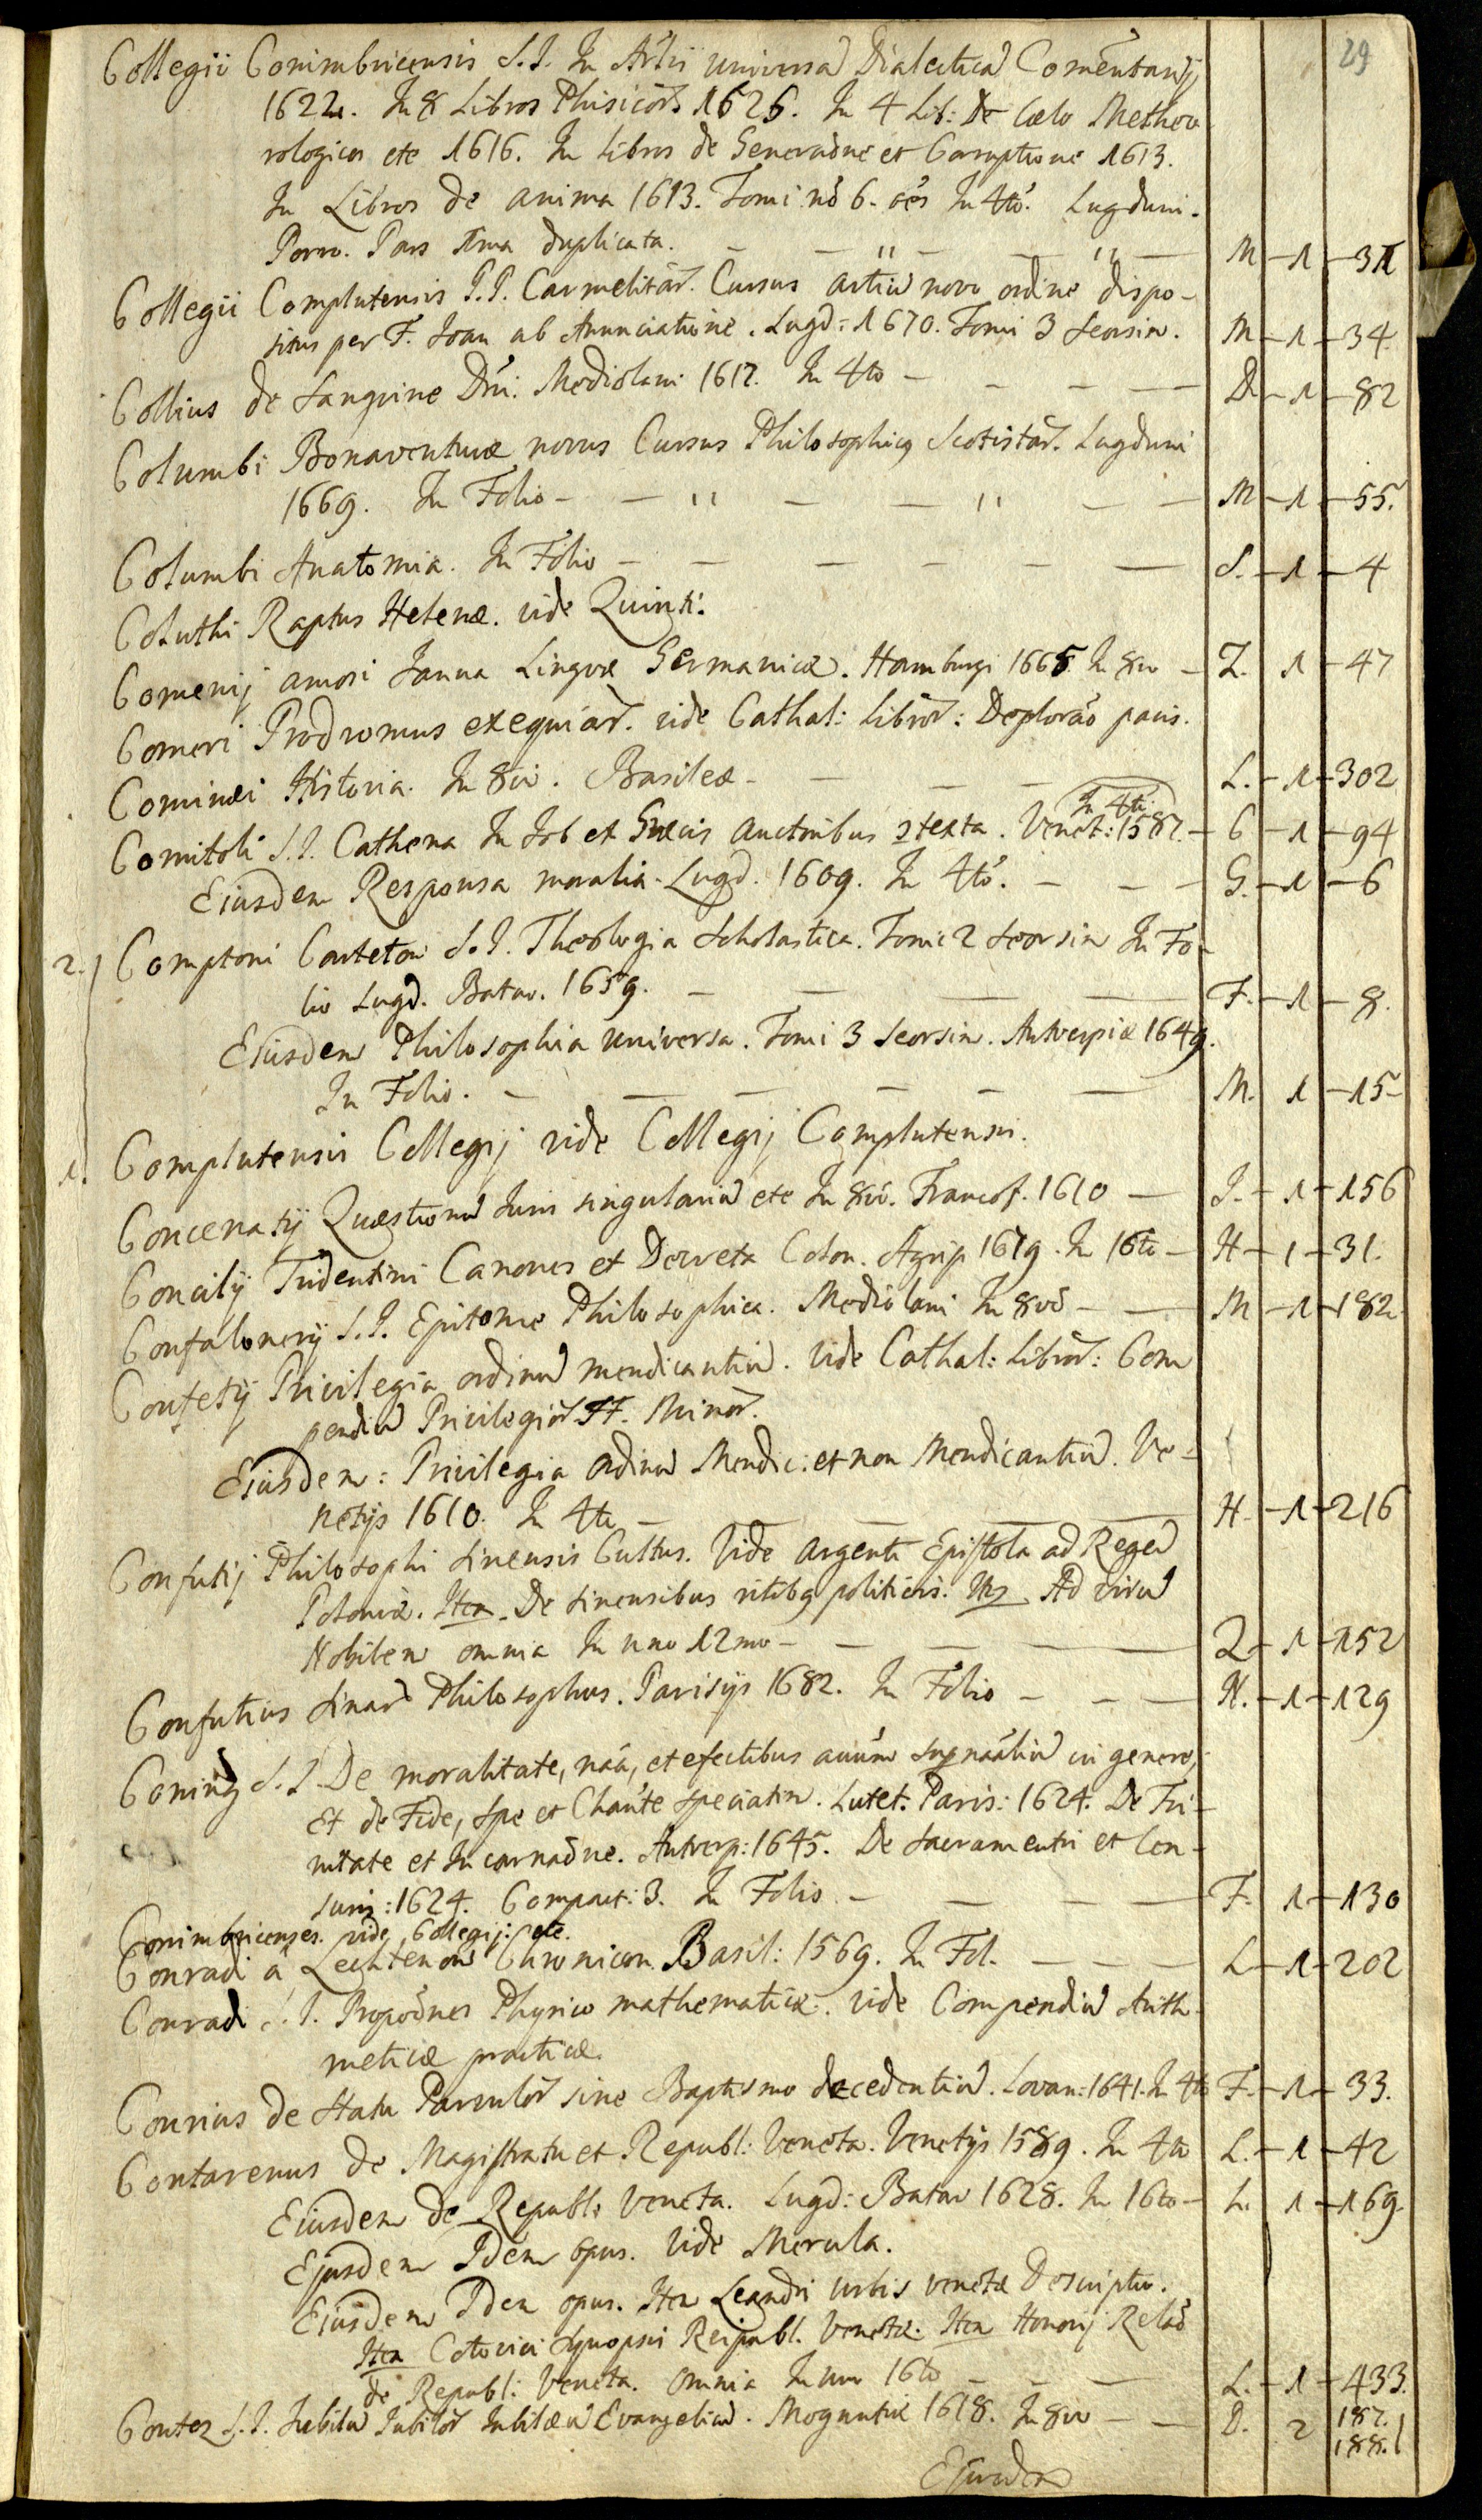 29
Collegii Conimbricensis S.I. In Aris universã Dialecticã Comentarij
1622. In 8 Libros Phisicor. 1626. In 4 Lib: De Cælo Metheo
rologicos etc 1616. In Libros de Generaõne et Corruptione 1613.
In Libros De anima 1613. Tomi nõ 6. oẽs In 4to. Lugduni.
Porro. Pars Ima duplicata. — — " — — " — M — 1 — 31
Collegii Complutensis P.P. Carmelitar. Cursus artiũ novo ordine dispo-
situs per F. Joan ab Anunciatione. Lugd: 1670. Tomi 3 seorsim. M — 1 — 34.
Collius de Sanguine Dñi. Mediolani 1617. In 4to — — — — D. — 1 — 82
Columbi Bonaventuræ novus Cursus Philosophicq Scotistar. Lugduni
1669. In Folio — — " — — " — — M — 1 — 55.
Columbi Anatomia. In Folio — — — — — — S. — 1 — 4
Coluthi Raptus Helenæ. vide Quinti.
Comenij amosi Janua Linguæ Germanicæ. Hamburgi 1665 In 8vo — Z. 1 — 47
Comeri Prodromus exequiar. vide Cathal: Libror: Deploraõ pacis.
Cominæi Historia. In 8vo. Basileæ — — — — L. — 1 — 302
In 4to.
Comitoli S.I. Cathena In Iob et Græcis auctoribus 9texta. Venet: 1587. — C — 1 — 94
Eiusdem Responsa moralia. Lugd. 1609. In 4to. — — — G. — 1 — 6
2. Comptoni Carleton S.I. Theologia Scholastica. Tomi 2 seorsim In Fo-
lio Lugd. Batav. 1659. — — — — F. — 1 — 8.
Eiusdem Philosophia universa. Tomi 3 seorsim. Antverpiæ 1649.
In Folio. — — — — — — M. 1 — 15
1. Complutensis Collegij vide Collegij Complutensis.
Concenatij Quæstionũ Iuris singulariũ etc In 8vo. Francof. 1610 — I. — 1 — 156
Concilij Tridentini Canones et Decreta Colon. Agrip 1619. In 16to — H — 1 — 31.
Confalonerij S.I. Epitome Philosophica. Mediolani In 8vo — — M — 1 — 182
Confetij Privilegia ordinũ mendicantiũ. vide Cathal: Libror: Com
pendiũ Privilegior FF. Minor.
Eiusdem: Privilegia Ordinũ Mendic: et non Mendicantiũ. Ve-
netijs 1610. In 4to — — — — H. — 1 — 216
Confutij Philosophi Sinensis Cultus. Vide Argenti Epistola ad Regẽ
Poloniæ. Item De Sinensibus ritibq politicis. Itẽ Ad virũ
Nobilem omnia In uno 12mo — — — — — Z — 1 — 152
Confutius Sinar Philosophus. Parisijs 1682. In Folio — — — N. — 1 — 129
Coninq S.I. De moralitate, naã, et efectibus actuũm supnaãliũ in genere,
Et de Fide, Spe et Charite speciatim. Lutet. Paris: 1624. De Tri-
nitate et Incarnaõne. Antverp: 1645. De Sacramentis et Cen-
suris: 1624. Compact: 3. In Folio — — — — F. 1 — 130
Conimbricenses. vide Collegij: etc.
Conradi a Lechtenow Chronicon. Basil: 1569. In Fol. — — — L — 1 — 202
Conradi S.I. Propoõnes Physico mathematicæ. vide Compendiũ Arith-
meticæ practicæ.
Conrius de Statu Parvulor sine Baptismo decedentiũ. Lovan: 1641. In 4to F. — 1 — 33.
Contarenus de Magistratu et Republ: Veneta. Venetijs 1589. In 4to L. — 1 — 42
Eiusdem de Republ: Veneta. Lugd: Batav 1628. In 16to — L. 1 — 169.
Ejusdem Idem opus. Vide Merula.
Eiusdem Idem opus. Item Leandri urbis venetæ Descriptio.
Item Cotovici Synopsis Reipubl. Venetæ. Item Honorij Relaõ
de Republ: Veneta. omnia In uno 16to — — — L. — 1 — 433.
Contez S.I. Iubilũ Iubilor Iubilæũ Evangeliũ. Moguntiæ 1618. In 8vo — — D. 2 187.
188.
Ejusdem